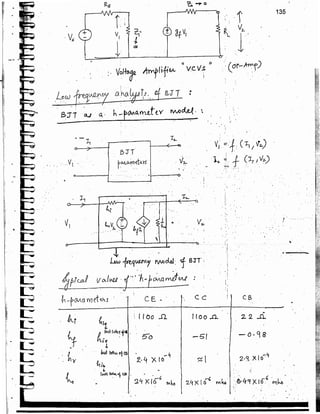 Rs
Ro → 0
135
Vs
V1
Ri
∞
AvV1
RL
V2
Voltage Amplifier "VCVS" (OP-Amp)
Low frequency analysis of BJT :
BJT as a h-parameter model :
I1
I2
V1
BJT
parameters
V2
V1 = f (I1, V2)
I2 = f (I1, V2)
I1
I2
V1
hi
hrV2
hf I1
V2
Low frequency model of BJT.
Typical values of h-parameters :
h-parameters CE. CC CB
hi 1100 Ω 1100 Ω 22 Ω
hf 50 -51 -0.98
hr 2.4 X 10^-4 ≈1 2.9 X 10^-4
ho 24 X 10^-6 mho 24 X 10^-6 mho 0.49 X 10^-6 mho